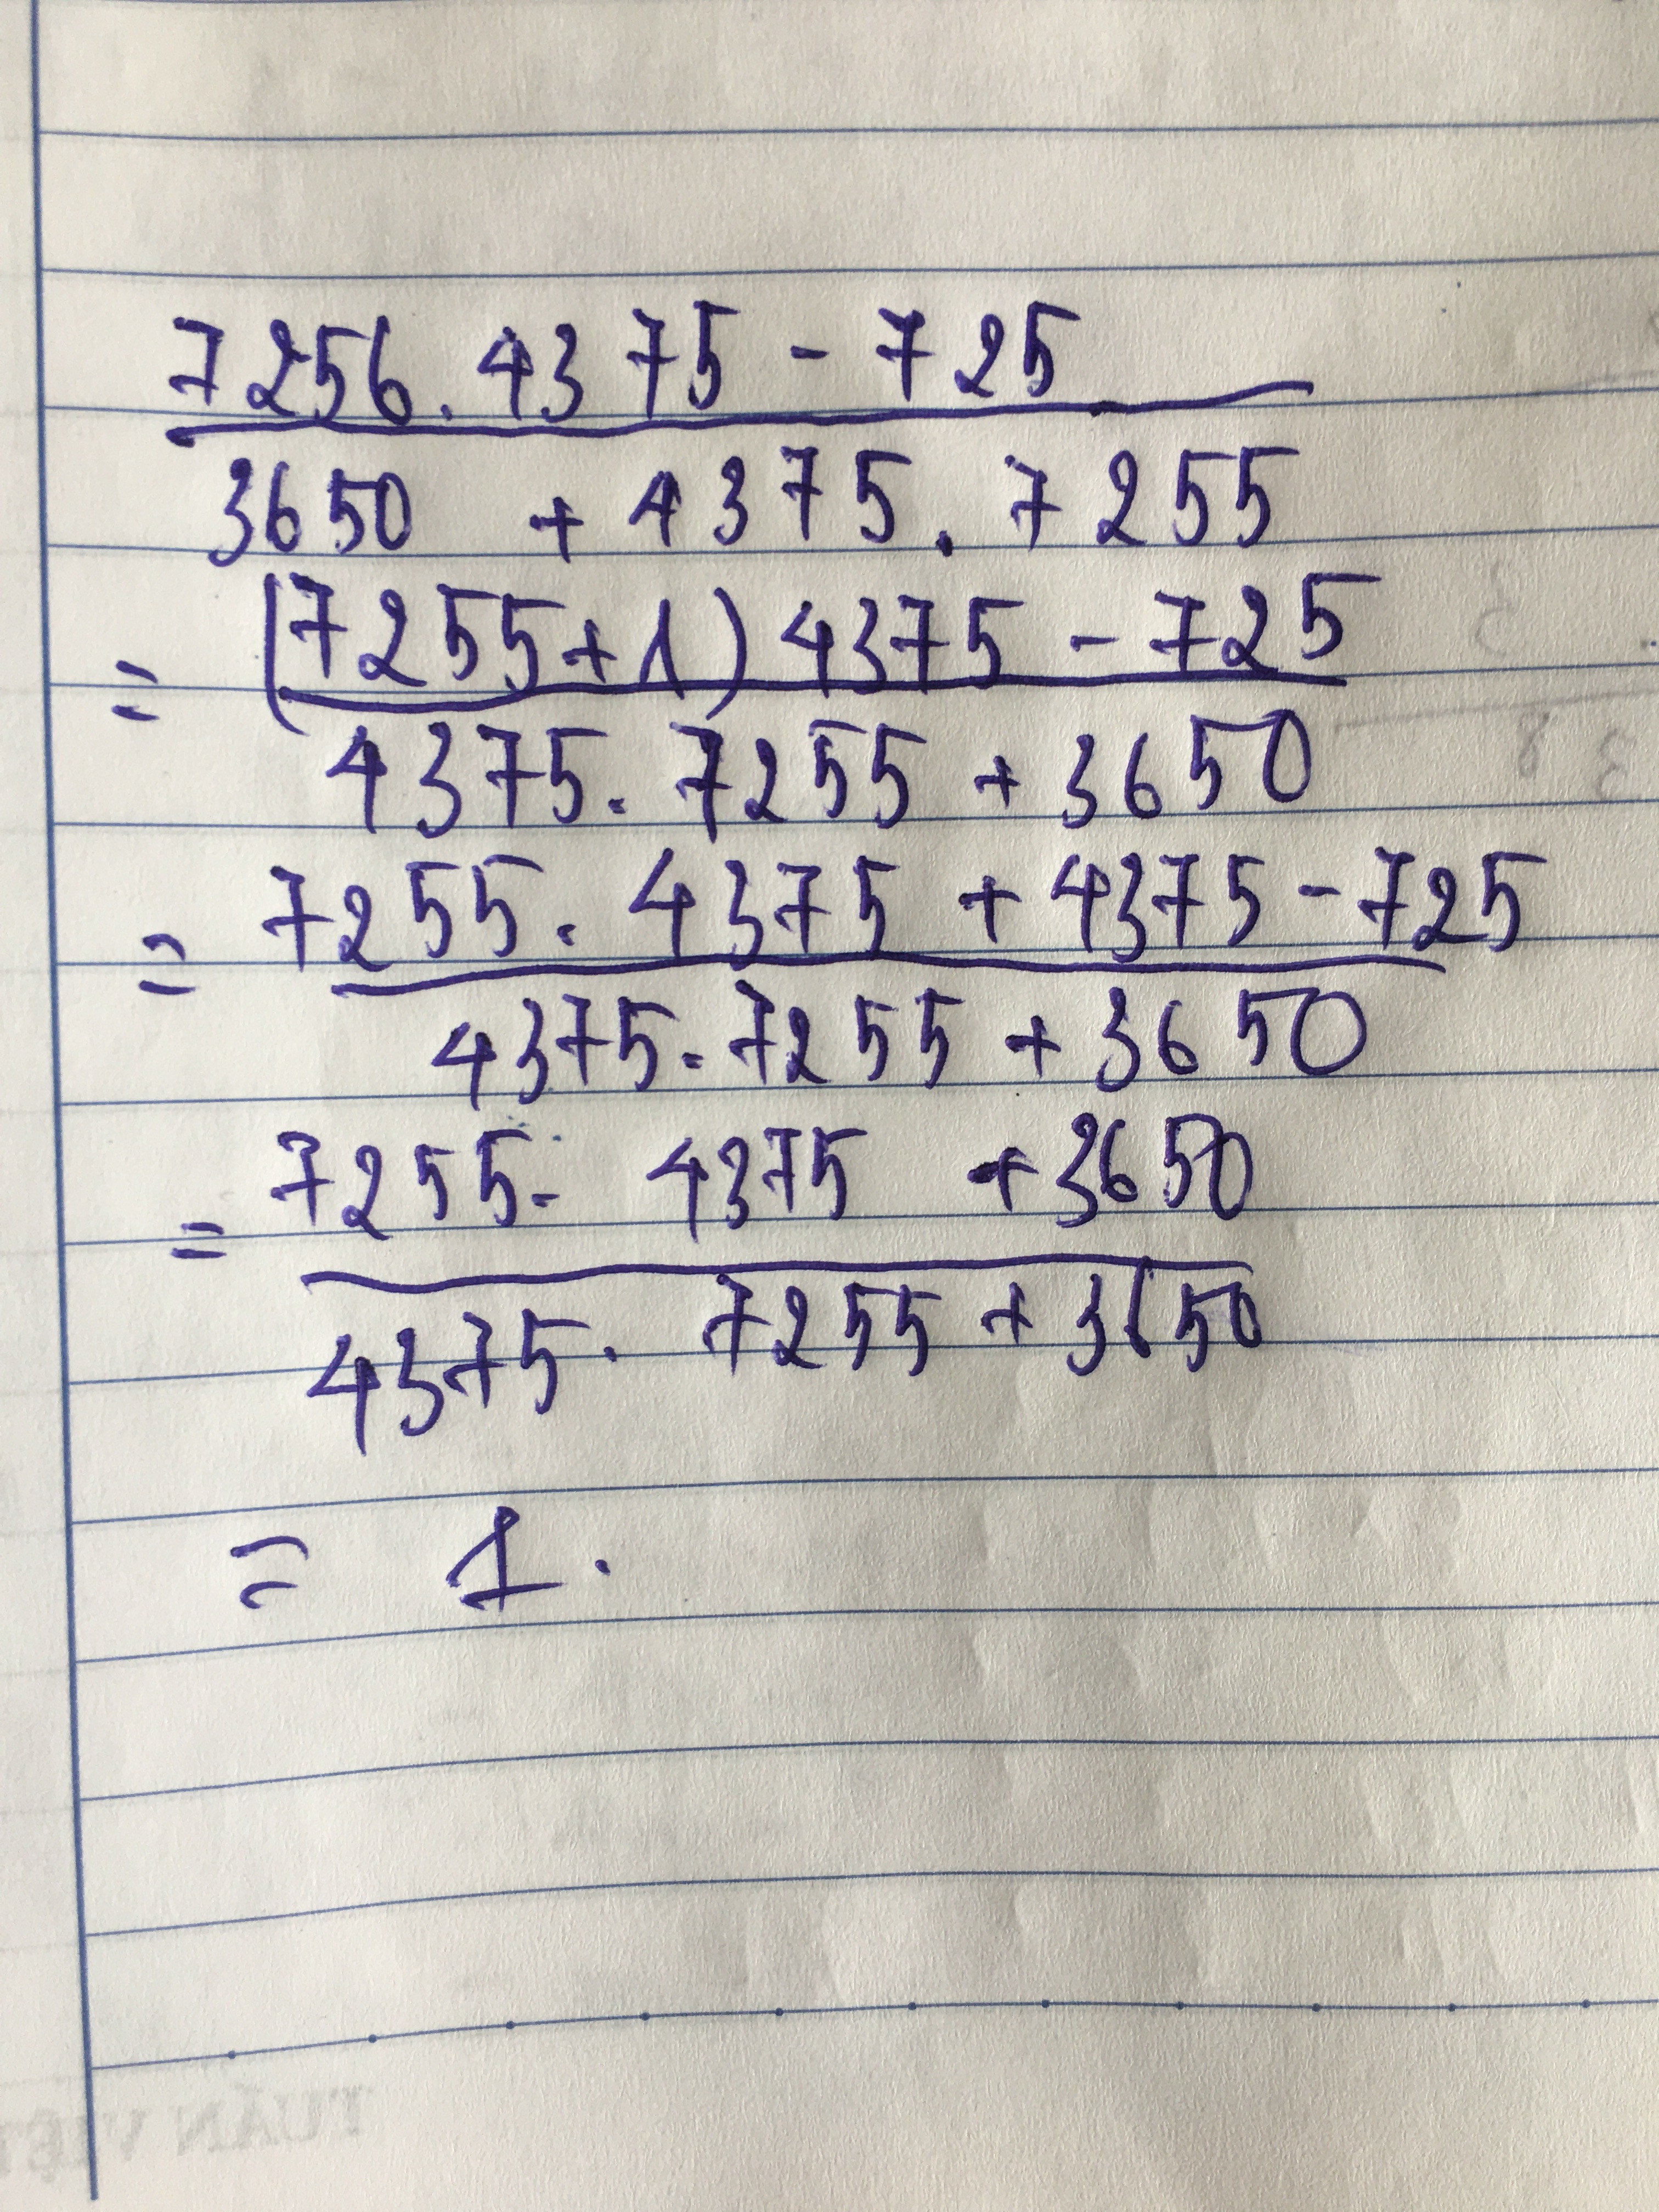 7256.4375-725
3650 + 4375.7255
= (7255+1)4375-725
4375.7255+3650
= 7255.4375+4375-725
4375.7255+3650
= 7255.4375+3650
4375.7255+3650
= 1.